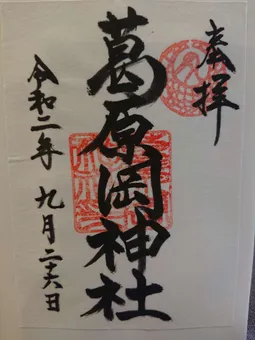 奉拝
葛原岡神社
令和二年 九月二六日